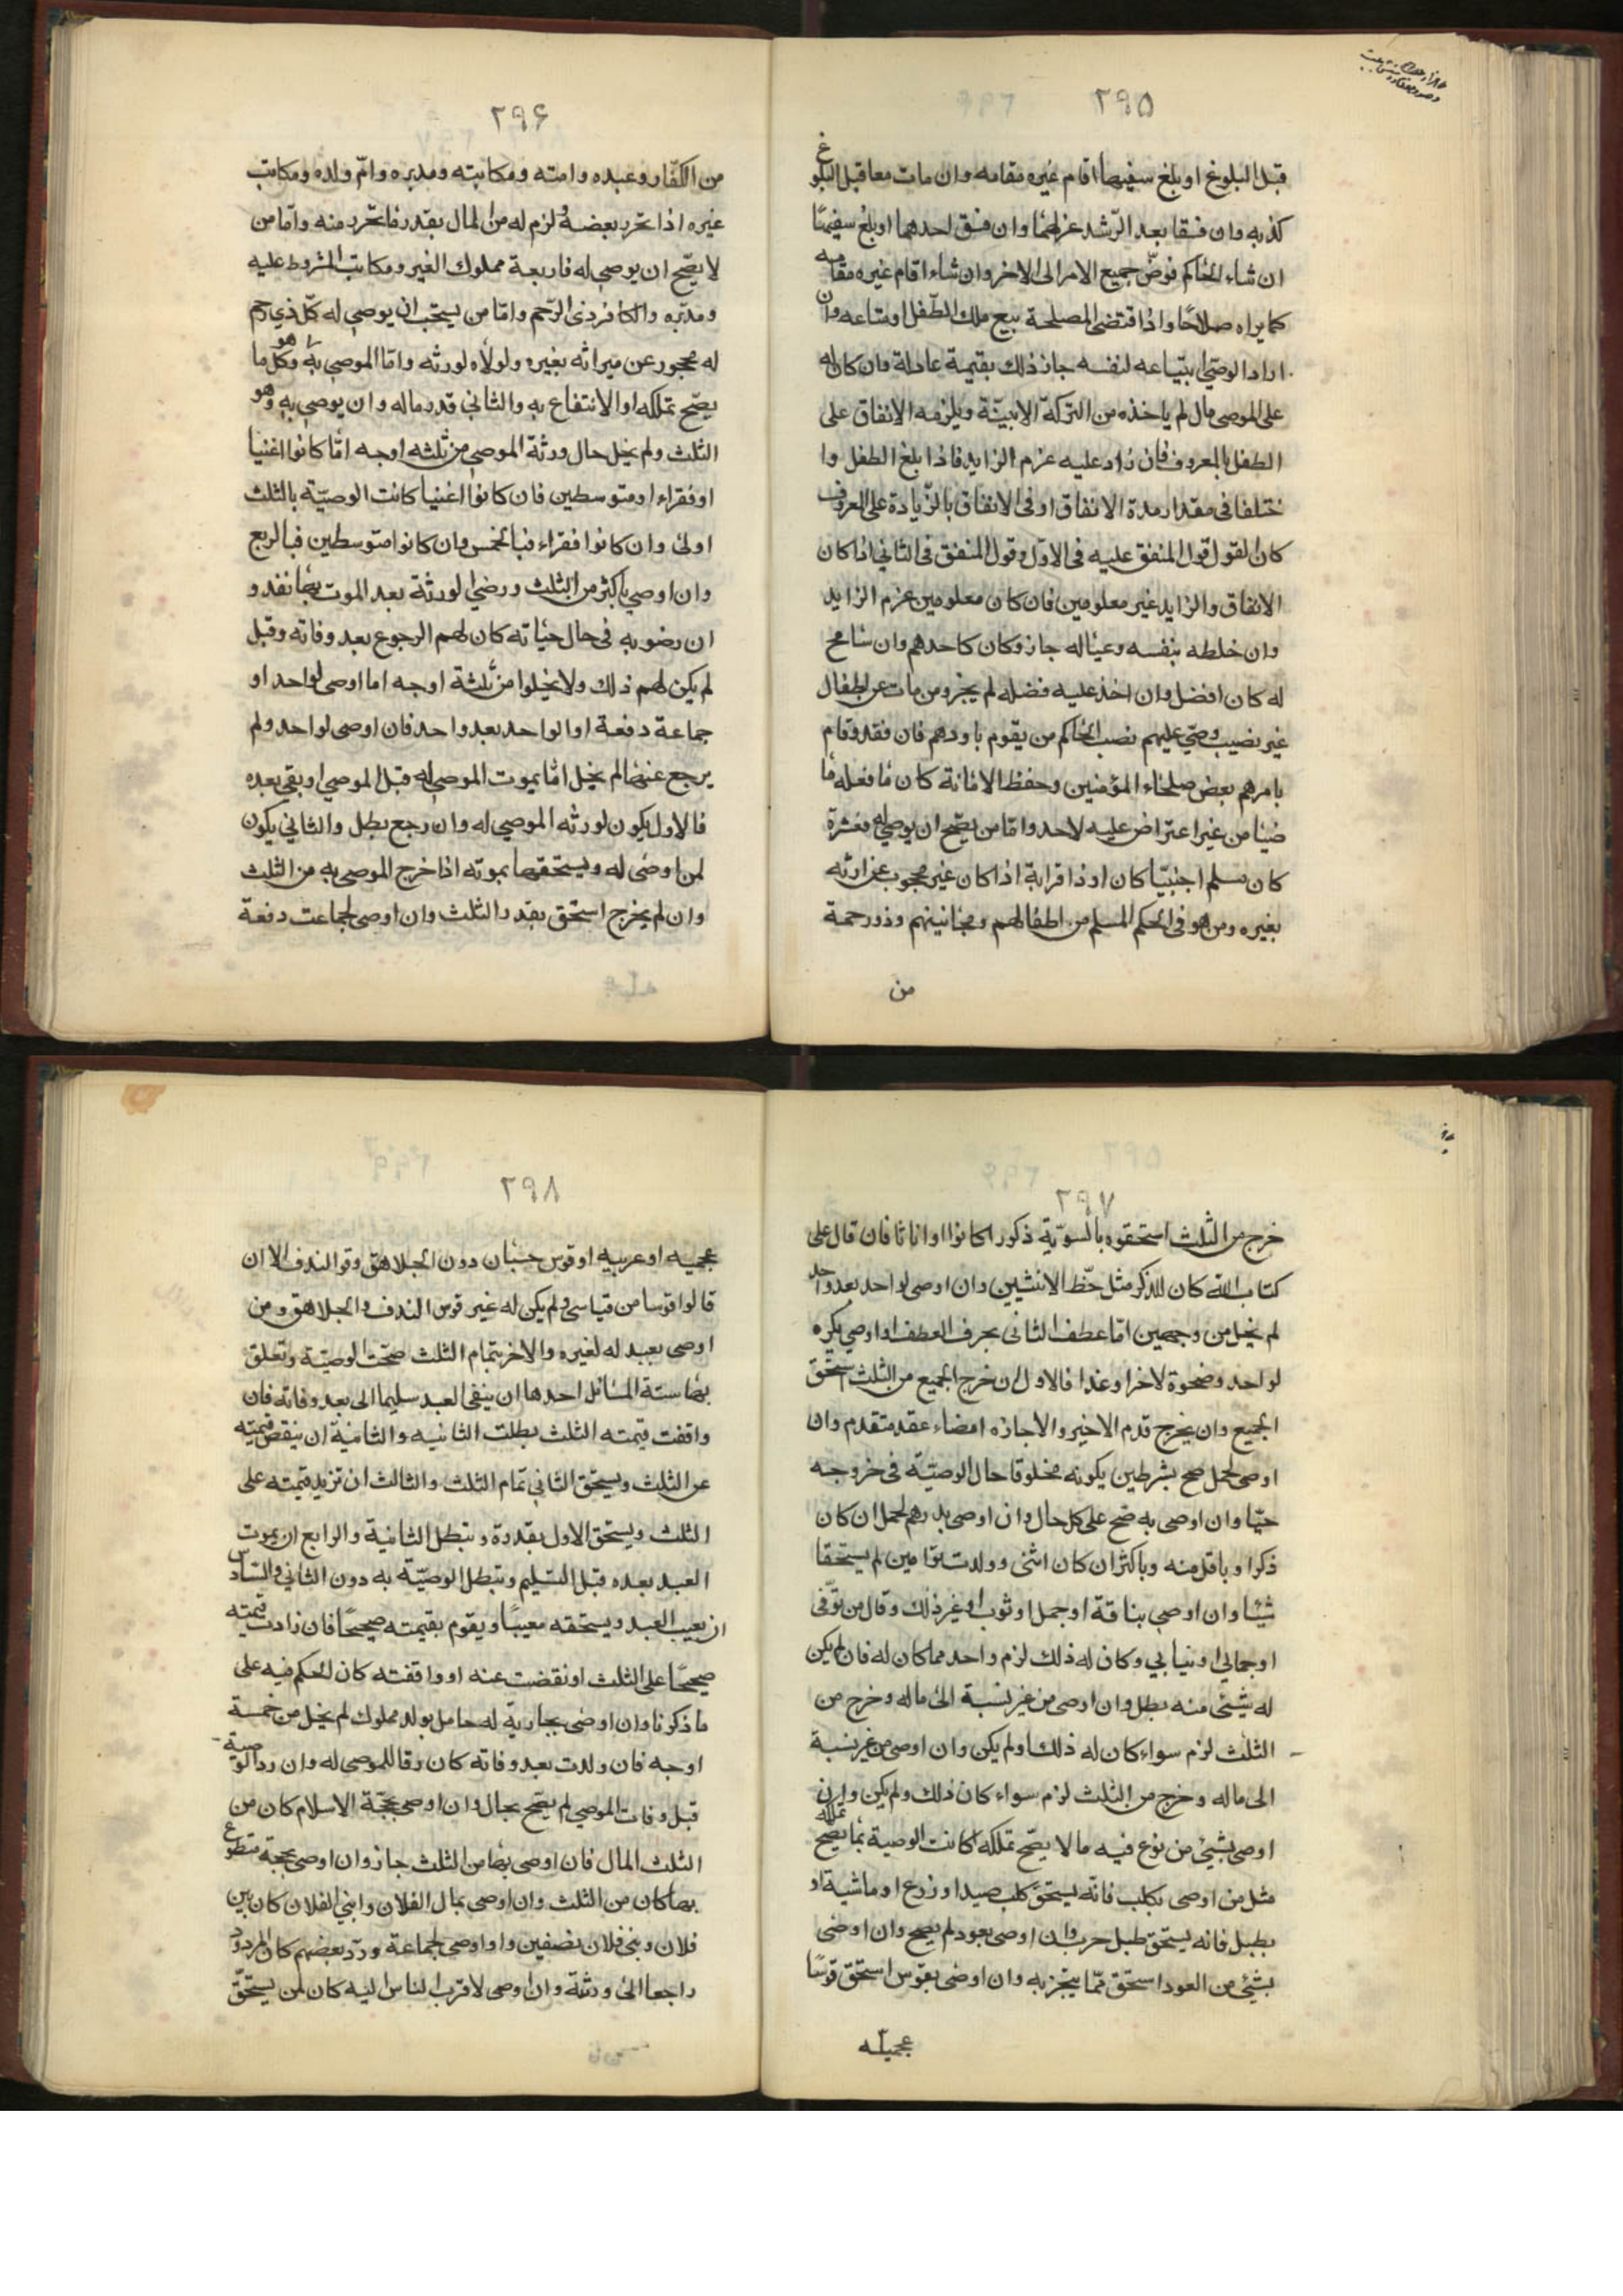 ٢٩٥
قبل البلوغ او بلغ سفيها اقام غيره مقامه وان مات معا قبل البلوغ
كذبه وان فسقا بعد الرّشد عزلهما وان فسق احدهما او بلغ سفيهًا
ان شاء الحاكم فوضّ جميع الامر الى الاخر وان شاء اقام غيره مقامه
كما يراه صلاحًا واذا قتضى المصلحة بيع ملك الطّفل او متاعه وان
اراد الوصّى ابتياعه لنفسه جاز ذلك بقيمة عادلة فان كان له
على الموصى مال لم ياخذه من التركة الا ببيّنة ويلزمه الانفاق على
الطفل بالمعروف فان زاد عليه غرم الزايد فاذا بلغ الطفل وا
ختلفا فى مقدار مدة الانفاق او فى الانفاق بالزّيادة على المعروف
كان القول قول المنفق عليه فى الاوّل وقول المنفق فى الثاني اذا كان
الانفاق والزايد غير معلومين فان كان معلومين غرم الزايد
وان خلطه بنفسه وعياله جاز وكان كاحدهم وان سامح
له كان افضل وان اخذ عليه فضله لم يجز ومن مات عن اطفال
غير نصيب وصّي عليهم نصب الحاكم من يقوم باودهم فان فقد وقام
بامرهم بعض صلحاء المؤمنين وحفظ الامانة كان ما فعله ما
ضيا من غير اعتراض عليه لاحد وامّا من يصّح ان يوصي له فعشرة
كان مسلم اجنبيّا كان او ذا قرابة اذا كان غير محجوب عن ارثه
بغيره ومن هو فى الحكم المسلم من اطفالهم ومجانينهم وذو رحمة
من
٢٩۶
من الكفّار وعبده وامته ومكاتبته ومدبره وامّ ولده ومكاتب
غيره اذا تحّرر بعضه ولزم له من المال بقدر ما تحّرر منه وامّا من
لا يصّح ان يوصي له فاربعة مملوك الغير ومكاتب المشروط عليه
ومدبّره والكافر ذى الرّحم وامّا من يستحّب ان يوصي له كلّ ذي رحم
له محجور عن ميراثه بغيره ولولاه لورثه وامّا الموصى به هو وكل ما
يصّح تملكه او الانتفاع به والثاني قدر ماله وان يوصي به وهو
الثلث ولم يخل حال ورثة الموصي من ثلثه اوجه امّا كانوا اغنيا
او فقراء او متوسطين فان كانوا اغنيا كانت الوصيّة بالثلث
اولى وان كانوا فقراء فبالخمس وان كانوا متوسطين فبالربع
وان اوصي باكثر من الثلث ورضي الورثة بعد الموت بها نفد و
ان رضوبه فى حال حياته كان لهم الرجوع بعد وفاته وقبل
لم يكن لهم ذلك ولا يخيلوا من ثلثة اوجه اما اوصى لواحد او
جماعة دفعة او الواحد بعد واحد فان اوصى لواحد ولم
يرجع عنها لم يخل امّا يموت الموصى له قبل الموصي او بقي بعده
فالاول يكون لورثه الموصي له وان رجع بطل والثاني يكون
لمن اوصى له ويستحقها بموته اذا خرج الموصى به من الثلث
وان لم يخرج استحق بقدر الثلث وان اوصى لجماعت دفعة
٢٩٧
خرج من الثلث استحقوه بالسوّية ذكورا كانوا او اناثا فان قال على
كتاب الله كان للذكر مثل حّظ الانثيين وان اوصى لواحد بعد واحد
لم يخل من وجهين امّا عطف الثانى بحرف العطف او اوصي بكره
لواحد وضحوة لاخر او غدا فالاول ان خرج الجميع من الثلث استحّق
الجميع وان يخرج قدم الاخير والاجازه امضاء عقد متقدم وان
اوصى لحمل صح بشرطين يكونه مخلوقا حال الوصيّة فى خروجه
حيّا وان اوصى به صّح على كل حال وان اوصى بدرهم لحمل ان كان
ذكرا وباقل منه وباكثر ان كان انثى وولدت توامين لم يستحقا
شيًا وان اوصي بناقة او جمل او ثوب او غير ذلك وقال من نوقى
او جمالي او ثيابي وكان له ذلك لزم واحد مما كان له فان لم يكن
له شيئى منه بطل وان اوصى من غير نسبة الى ماله وخرج من
الثلث لزم سواء كان له ذلك او لم يكن وان اوصى من غير نسبة
الى ماله وخرج من الثلث لزم سواء كان ذلك ولم يكن وان
اوصى بشيئ من نوع فيه ما لا يصّح تملكه كانت الوصية بما يصّح تملكه
مثل من اوصى بكلب فانّه يستحق كلب صيد او زرع او ماشية او
بطبل فانه يستحق طبل حرب وان اوصى بعود لم يصح وان اوصى
بشيئ من العود استحق ممّا يتجز به وان اوصى بقوس استحق قوسًا
عجميّه
٢٩٨
عجميه او عربيه او قوس حسبان دون الجلاهق وقو الندف الا ان
قالوا قوسا من قياسى ولم يكن له غير قوس الندف والجلاهق ومن
اوصى بعبد له لغيره والاخر بتمام الثلث صحّت الوصيّة وتعلق
بها ستة المسائل احدها ان يبقى العبد سليما الى بعد وفاته فان
وافقت قيمته الثلث بطلت الثانيه والثانية ان ينقض قيمته
عن الثلث ويستحّق الثاني تمّام الثلث والثالث ان تزيد قيمته على
الثلث ويستحق الاول بقدرة وتبطل الثانية والرابع ان يموت
العبد بعده قبل التسليم وتبطل الوصيّة به دون الثاني والسّادس
ان يعيب العبد ويستحقه معيبًا ويقوم بقيمته صحيحًا فان زادت قيمته
صحيحًا على الثلث او نقضت عنه او وافقته كان الحكم فيه على
ما ذكرنا وان اوصى بجارية له حامل بولد مملوك لم يخل من خمسة
اوجه فان ولدت بعد وفاته كان رقا للموصى له وان رد الوصية
قبل وفات الموصي لم يصّح بحال وان اوصى بحجّة الاسلام كان من
الثلث المال فان اوصى بها من الثلث جاز وان اوصى بحجة متطوع
بها كان من الثلث وان اوصى بمال الفلان وابني الفلان كان بين
فلان وبني فلان نصفين واو اوصى لجماعة وردّ بعضهم كان المردود
راجعا الى ورثة وان اوصى لاقرب الناس اليه كان لمن يستحّق